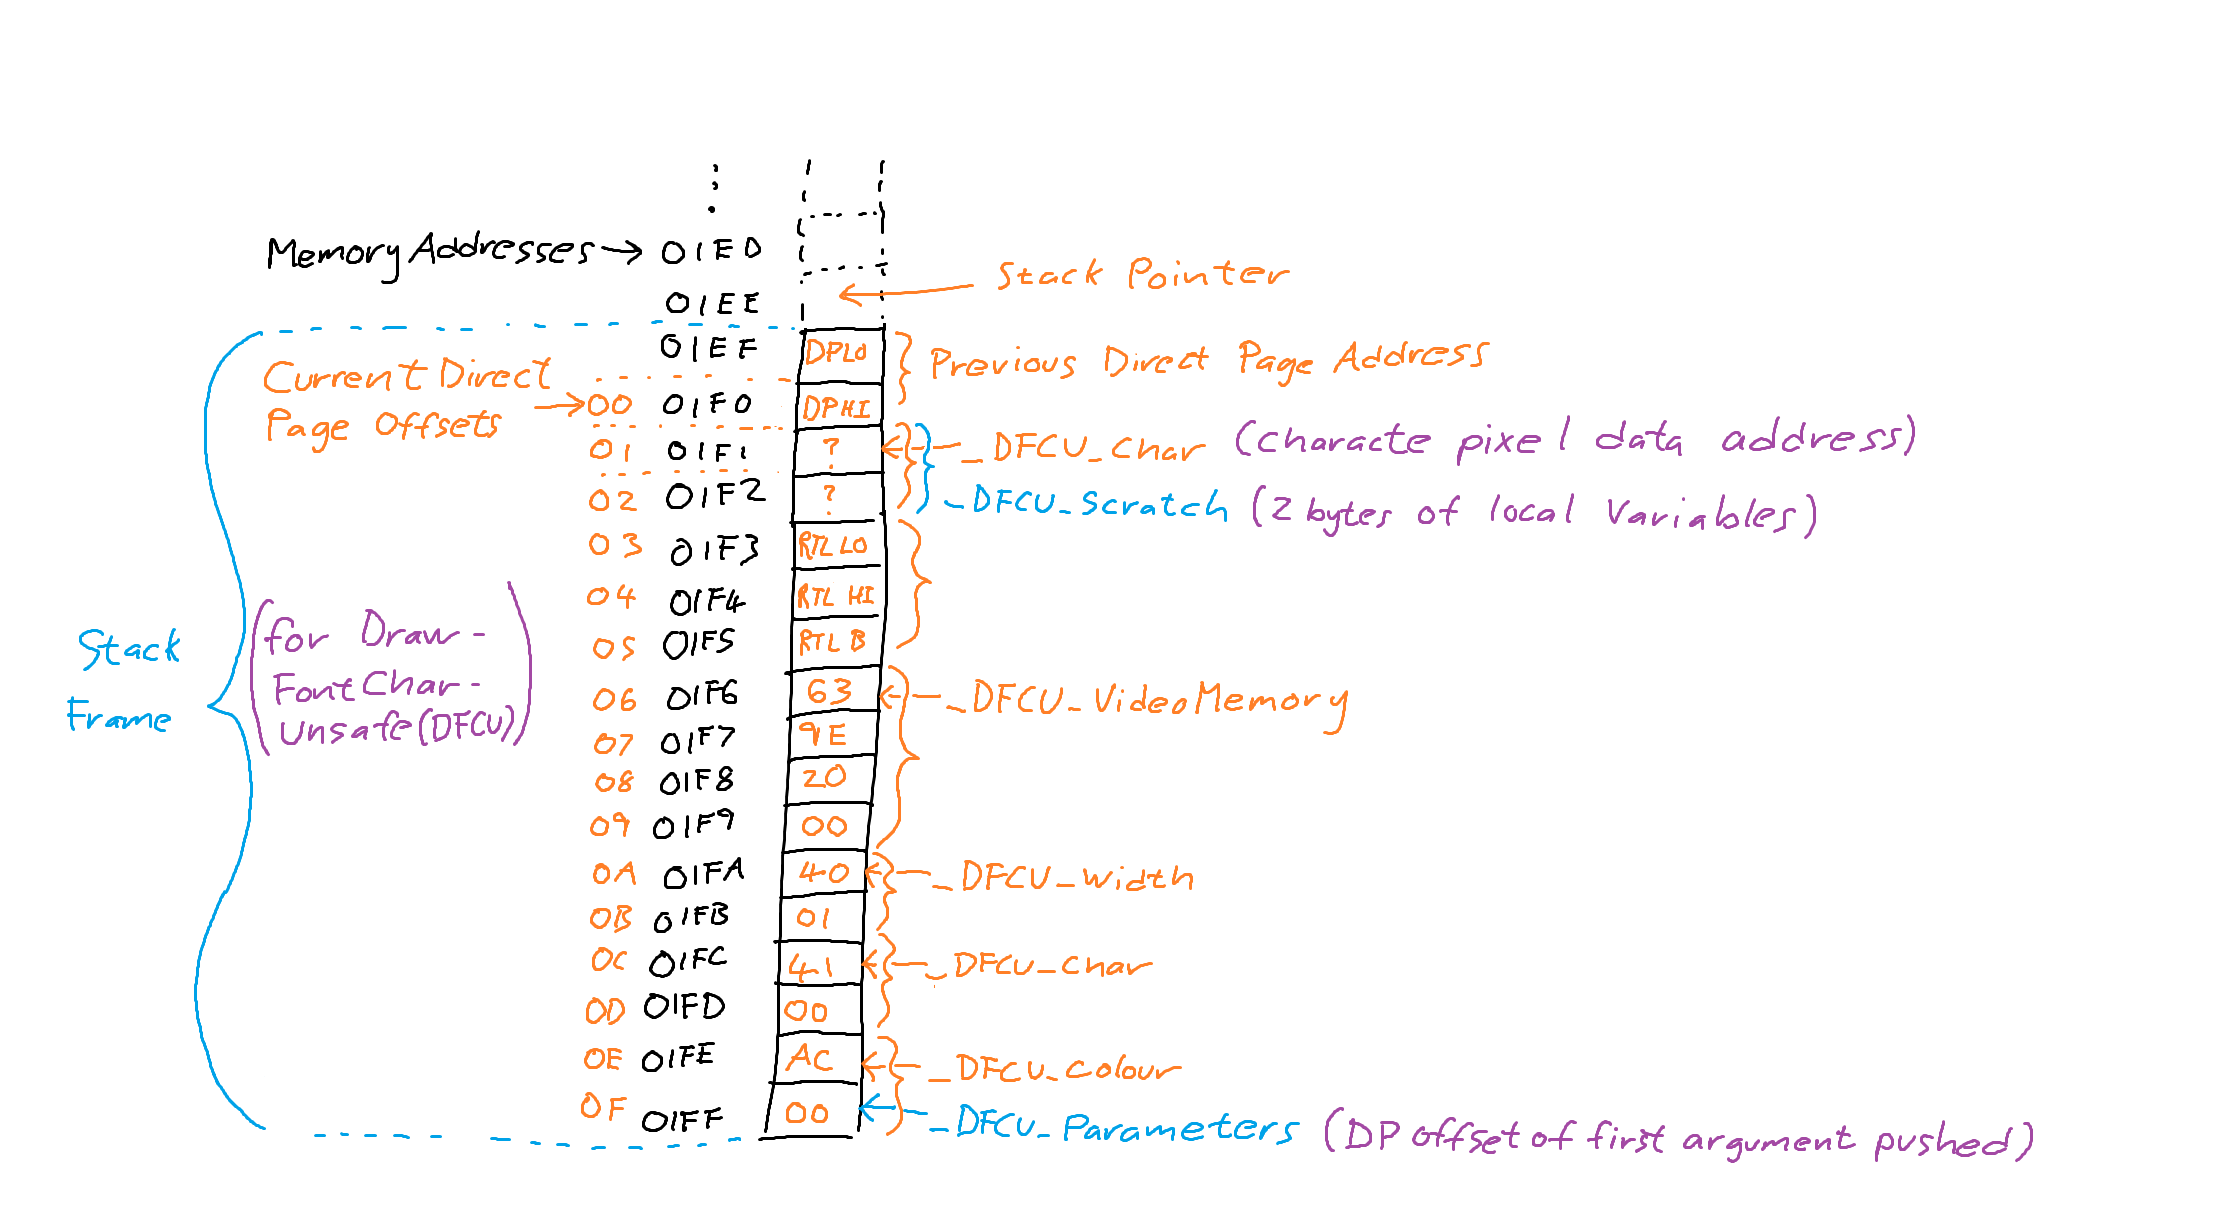 Memory Addresses → 01ED
Stack Pointer
01EE
01EF DPLO
Previous Direct Page Address
Current Direct
Page Offsets
→ 00 01F0 DPHI
01 01F1 ? _DFCU_Char (characte pixel data address)
02 01F2 ? _DFCU_Scratch (2 bytes of local variables)
03 01F3 RTL LO
04 01F4 RTL HI
05 01F5 RTL B
Stack
Frame
(for Draw-
FontChar-
Unsafe(DFCU))
06 01F6 63 _DFCU_VideoMemory
07 01F7 9E
08 01F8 20
09 01F9 00
0A 01FA 40 _DFCU_Width
0B 01FB 01
0C 01FC 41 _DFCU_Char
0D 01FD 00
0E 01FE AC _DFCU_Colour
0F 01FF 00 _DFCU_Parameters (DP offset of first argument pushed)